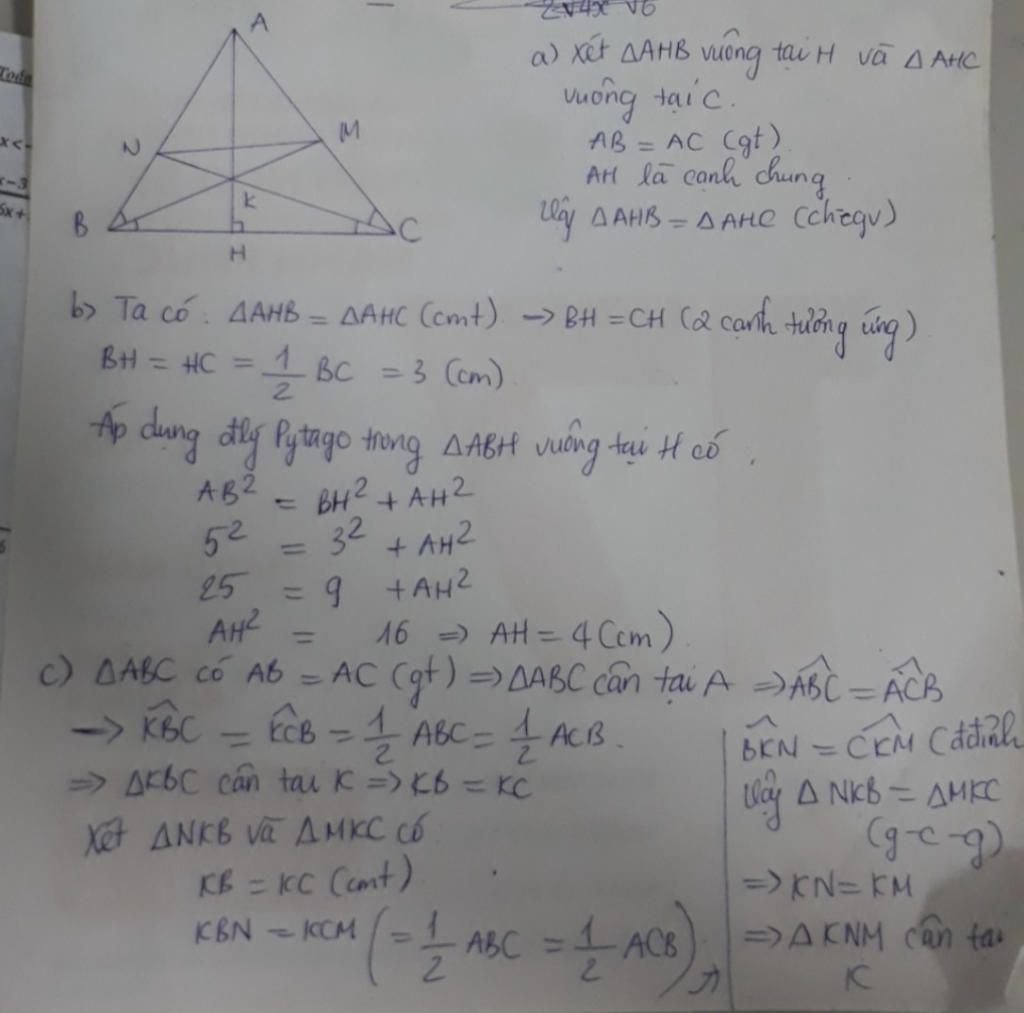 2√4x √6
Toán
x<-
x-3
5x+
A
N
M
B
K
C
H
a) Xét ΔAHB vuông tại H và ΔAHC
vuông tại C.
AB = AC (gt)
AH là cạnh chung.
Vậy ΔAHB = ΔAHC (ch-cgv)
b) Ta có: ΔAHB = ΔAHC (cmt) → BH = CH (2 cạnh tương ứng)
BH = HC = 1/2 BC = 3 (cm)
Áp dụng đlý Pytago trong ΔABH vuông tại H có
AB² = BH² + AH²
5² = 3² + AH²
25 = 9 + AH²
AH² = 16 => AH = 4 (cm)
c) ΔABC có AB = AC (gt) => ΔABC cân tại A => ABC^ = ACB^
→ KBC^ = KCB^ = 1/2 ABC = 1/2 ACB.
=> ΔKBC cân tại K => KB = KC
Xét ΔNKB và ΔMKC có
KB = KC (cmt)
KBN = KCM (= 1/2 ABC = 1/2 ACB)
BKN^ = CKM^ (đđỉnh
Vậy ΔNKB = ΔMKC
(g-c-g)
=> KN = KM
=> ΔKNM cân tại
K